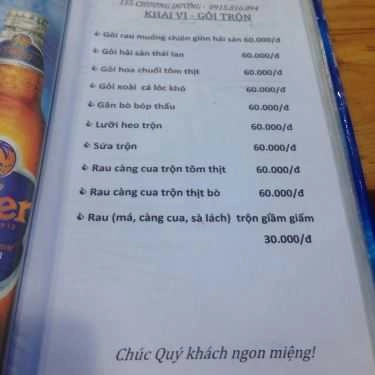 155 CHƯƠNG DƯƠNG - 0915.816.094
KHAI VỊ - GỎI TRỘN
Gỏi rau muống chiên giòn hải sản 60.000/đ
Gỏi hải sản thái lan 60.000/đ
Gỏi hoa chuối tôm thịt 60.000/đ
Gỏi xoài cá lóc khô 60.000/đ
Gân bò bóp thấu 60.000/đ
Lưỡi heo trộn 60.000/đ
Sứa trộn 60.000/đ
Rau càng cua trộn tôm thịt 60.000/đ
Rau càng cua trộn thịt bò 60.000/đ
Rau (má, càng cua, sà lách) trộn giầm giấm
30.000/đ
Chúc Quý khách ngon miệng!